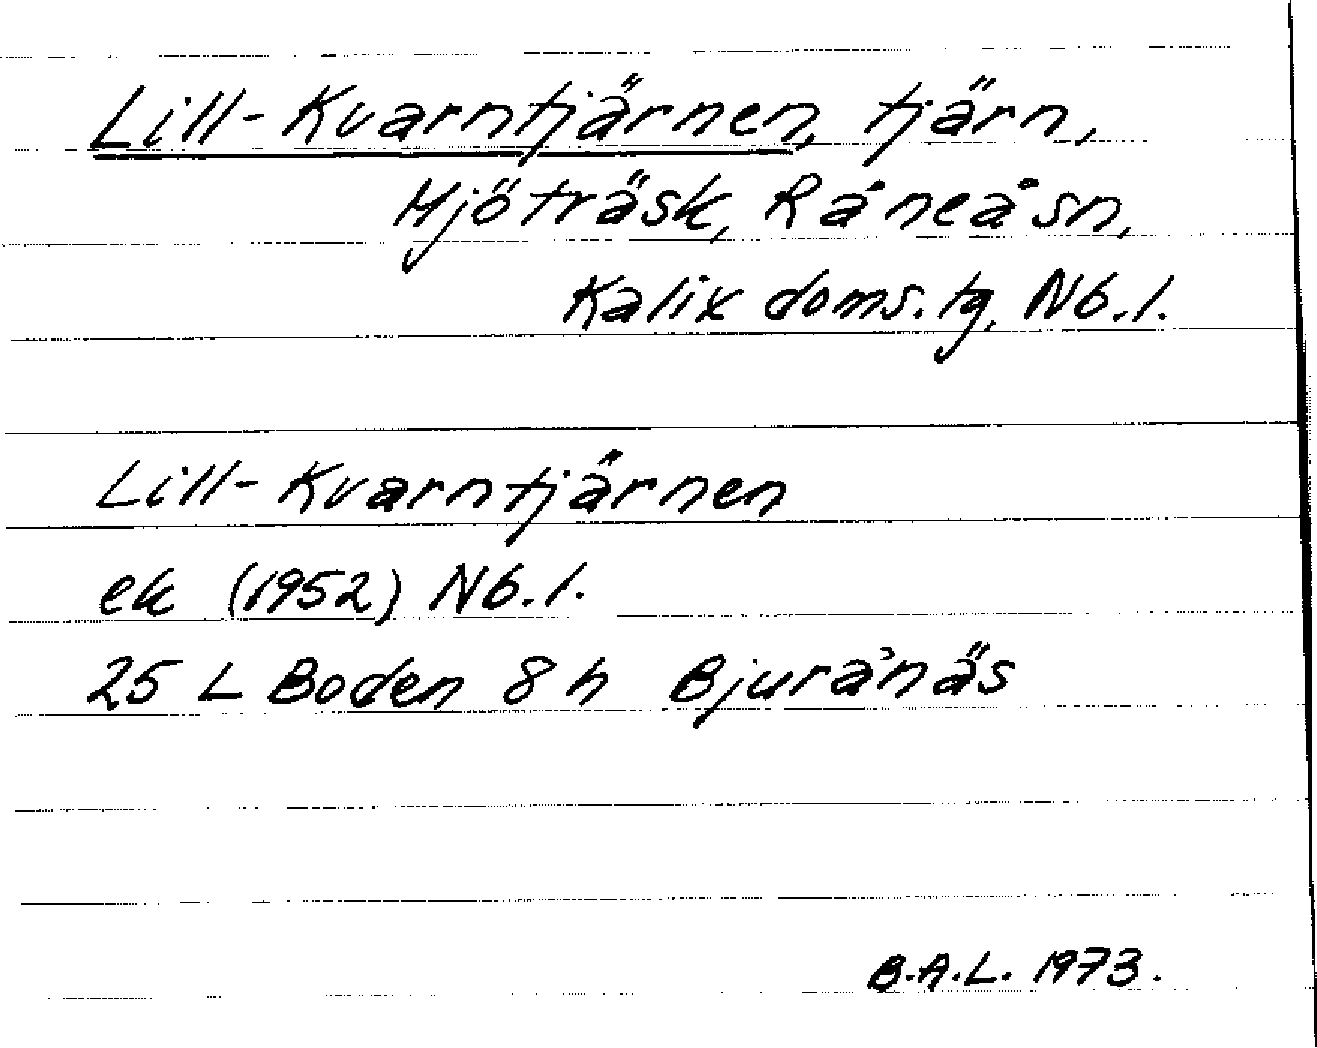 Lill-Kvarntjärnen, tjärn,
Mjöträsk, Råneå sn,
Kalix doms. tg, Nb. l.
Lill-Kvarntjärnen
ek (1952) Nb. l.
25 L Boden 8 h Bjurånäs
B.A.L. 1973.